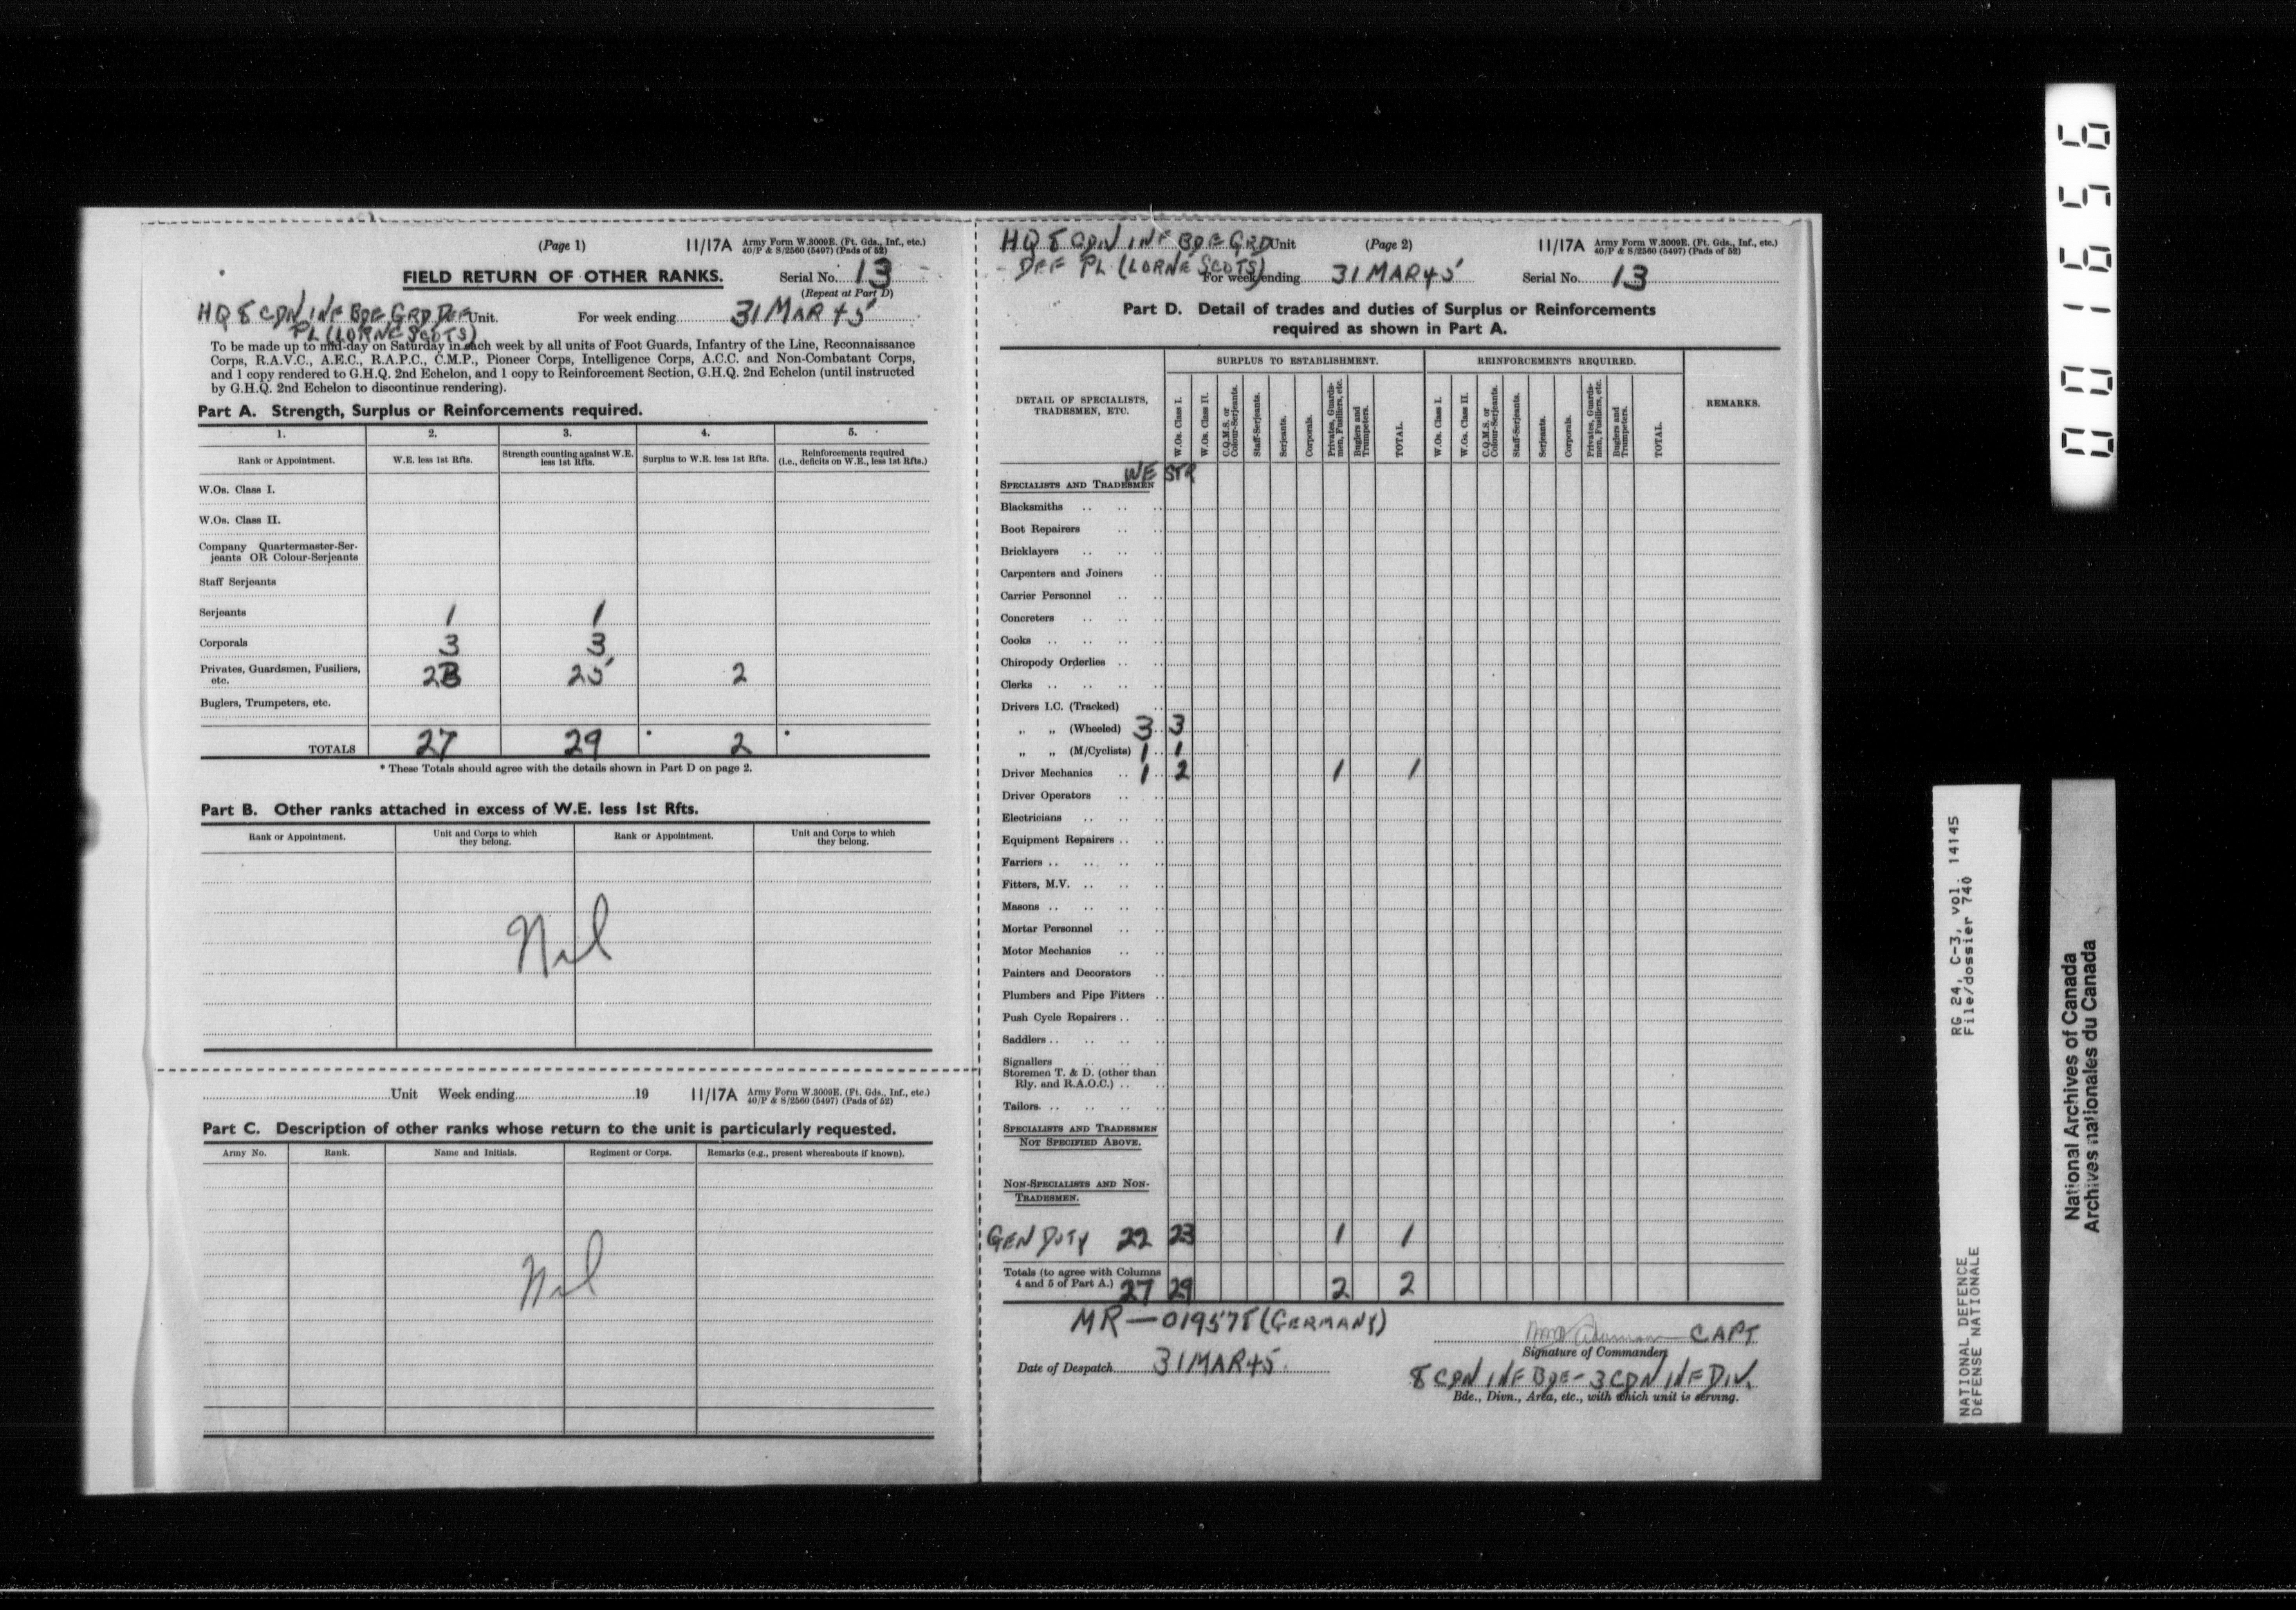 (Page 1) 11/17A Army Form W.3009E. (Ft. Gds., Inf., etc.)
40/P & S/2560 (5497) (Pads of 52)
FIELD RETURN OF OTHER RANKS. Serial No. 13
(Repeat at Part D)
HQ 8 CDN INF BDE GRD DEF Unit. For week ending 31 MAR 45
PL (LORNE SCOTS)
To be made up to mid-day on Saturday in each week by all units of Foot Guards, Infantry of the Line, Reconnaissance
Corps, R.A.V.C., A.E.C., R.A.P.C., C.M.P., Pioneer Corps, Intelligence Corps, A.C.C. and Non-Combatant Corps,
and 1 copy rendered to G.H.Q. 2nd Echelon, and 1 copy to Reinforcement Section, G.H.Q. 2nd Echelon (until instructed
by G.H.Q. 2nd Echelon to discontinue rendering).
Part A. Strength, Surplus or Reinforcements required.
1. 2. 3. 4. 5.
Rank or Appointment. W.E. less 1st Rfts. Strength counting against W.E. less 1st Rfts. Surplus to W.E. less 1st Rfts. Reinforcements required (i.e., deficits on W.E., less 1st Rfts.)
W.Os. Class I.
W.Os. Class II.
Company Quartermaster-Ser-
jeants OR Colour-Serjeants
Staff Serjeants
Serjeants 1 1
Corporals 3 3
Privates, Guardsmen, Fusiliers, etc. 23 25 2
Buglers, Trumpeters, etc.
TOTALS 27 29 * 2 *
* These Totals should agree with the details shown in Part D on page 2.
Part B. Other ranks attached in excess of W.E. less 1st Rfts.
Rank or Appointment. Unit and Corps to which they belong. Rank or Appointment. Unit and Corps to which they belong.
Nil
Unit Week ending 19 11/17A Army Form W.3009E. (Ft. Gds., Inf., etc.)
40/P & S/2560 (5497) (Pads of 52)
Part C. Description of other ranks whose return to the unit is particularly requested.
Army No. Rank. Name and Initials. Regiment or Corps. Remarks (e.g., present whereabouts if known).
Nil
HQ 8 CDN INF BDE GRD Unit (Page 2) 11/17A Army Form W.3009E. (Ft. Gds., Inf., etc.)
40/P & S/2560 (5497) (Pads of 52)
DEF PL (LORNE SCOTS) For week ending 31 MAR 45 Serial No. 13
Part D. Detail of trades and duties of Surplus or Reinforcements
required as shown in Part A.
DETAIL OF SPECIALISTS, TRADESMEN, ETC. SURPLUS TO ESTABLISHMENT. REINFORCEMENTS REQUIRED. REMARKS.
W.Os. Class I. W.Os. Class II. C.Q.M.S. or Colour-Serjeants. Staff-Serjeants. Serjeants. Corporals. Privates, Guardsmen, Fusiliers, etc. Buglers and Trumpeters. TOTAL. W.Os. Class I. W.Os. Class II. C.Q.M.S. or Colour-Serjeants. Staff-Serjeants. Serjeants. Corporals. Privates, Guardsmen, Fusiliers, etc. Buglers and Trumpeters. TOTAL.
WE STR
SPECIALISTS AND TRADESMEN
Blacksmiths
Boot Repairers
Bricklayers
Carpenters and Joiners
Carrier Personnel
Concreters
Cooks
Chiropody Orderlies
Clerks
Drivers I.C. (Tracked)
" " (Wheeled) 3 3
" " (M/Cyclists) 1 1
Driver Mechanics 1 2 1 1
Driver Operators
Electricians
Equipment Repairers
Farriers
Fitters, M.V.
Masons
Mortar Personnel
Motor Mechanics
Painters and Decorators
Plumbers and Pipe Fitters
Push Cycle Repairers
Saddlers
Signallers
Storemen T. & D. (other than
Rly. and R.A.O.C.)
Tailors
SPECIALISTS AND TRADESMEN
NOT SPECIFIED ABOVE.
NON-SPECIALISTS AND NON-
TRADESMEN.
GEN DUTY 22 23 1 1
Totals (to agree with Columns
4 and 5 of Part A.) 27 29 2 2
MR — 019578 (GERMANY)
CAPT
Signature of Commander
Date of Despatch 31 MAR 45
8 CDN INF BDE - 3 CDN INF DIV.
Bde., Divn., Area, etc., with which unit is serving.
001656
RG 24, C-3, vol. 14145
File/dossier 740
NATIONAL DEFENCE
DÉFENSE NATIONALE
National Archives of Canada
Archives nationales du Canada